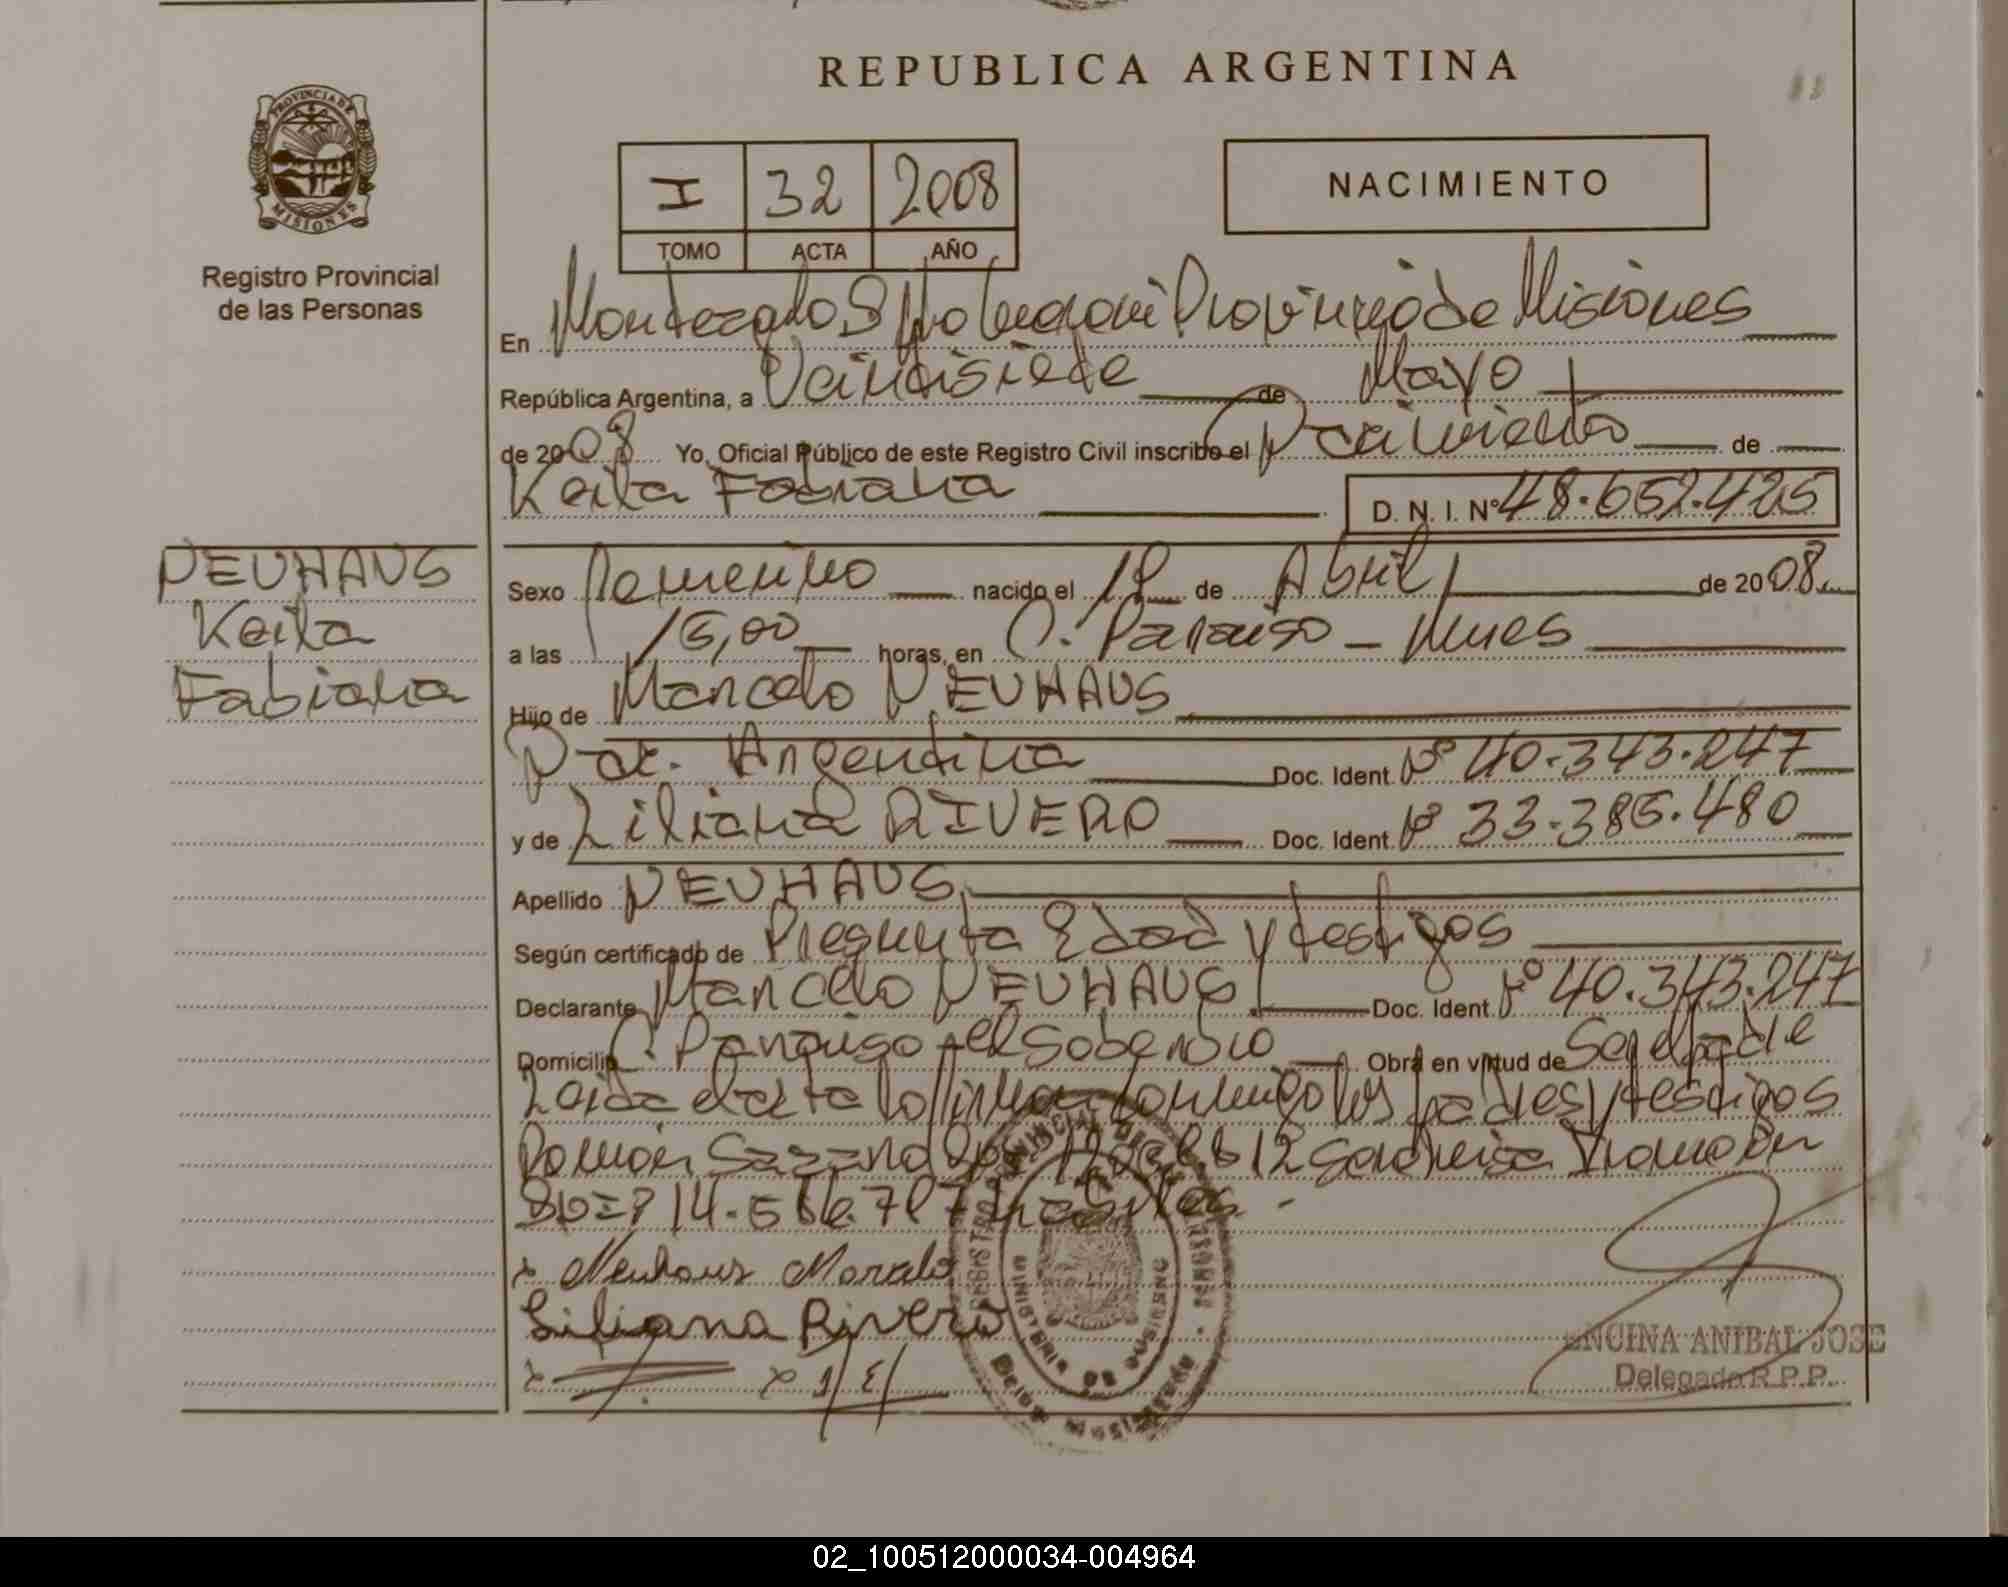 REPUBLICA ARGENTINA
PROVINCIA DE
MISIONES
Registro Provincial
de las Personas
I 32 2008
TOMO ACTA AÑO
NACIMIENTO
En Provincia de Misiones
República Argentina, a Veintisiete de Mayo
de 2008 Yo, Oficial Público de este Registro Civil inscribo el Nacimiento de
Keila Fabiana
D. N. I. Nº 48.652.425
NEUHAUS
Keila
Fabiana
Sexo Femenino nacido el de Abril de 2008
a las 15,00 horas, en C. Paraiso - Mnes
Hijo de Marcelo NEUHAUS
Nac. Argentina Doc. Ident. Nº 40.343.247
y de Liliana RIVERO Doc. Ident. Nº 33.385.480
Apellido NEUHAUS
Según certificado de Presunta Edad y testigos
Declarante Marcelo NEUHAUS Doc. Ident. Nº 40.343.247
Domicilio C. Paraiso - el Soberbio Obra en virtud de Ser el padre
Leida el acta la firman conmigo los padres y testigos
Ramón
x Neuhaus Marcelo
Liliana Rivero
ENCINA ANIBAL JOSE
Delegado R.P.P.
02_100512000034-004964